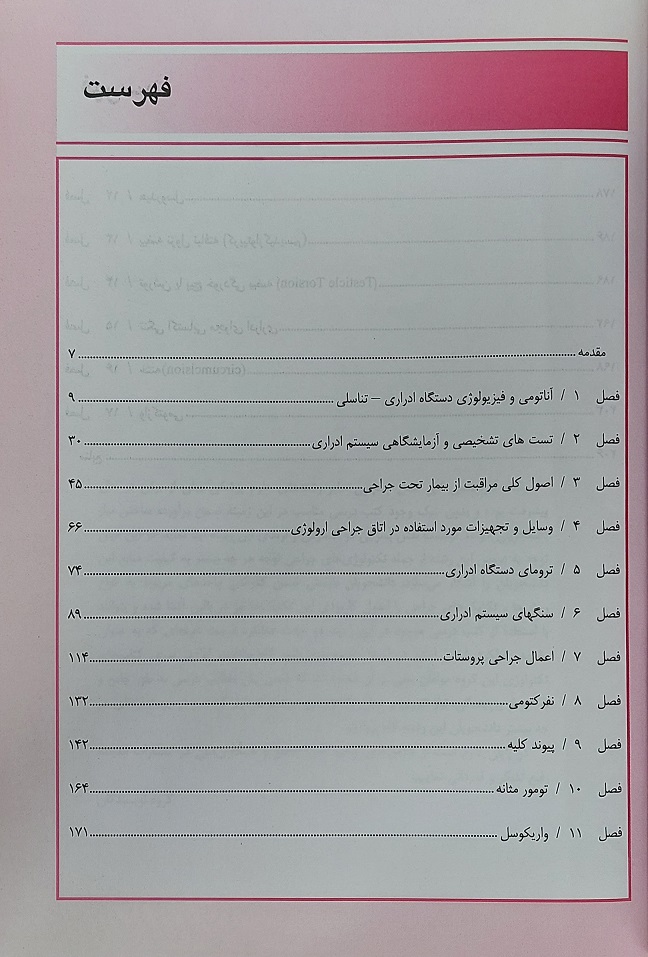 فهرست
مقدمه ........ ۷
فصل ۱ / آناتومی و فیزیولوژی دستگاه ادراری – تناسلی ........ ۹
فصل ۲ / تست های تشخیصی و آزمایشگاهی سیستم ادراری ........ ۳۰
فصل ۳ / اصول کلی مراقبت از بیمار تحت جراحی ........ ۴۵
فصل ۴ / وسایل و تجهیزات مورد استفاده در اتاق جراحی ارولوژی ........ ۶۶
فصل ۵ / ترومای دستگاه ادراری ........ ۷۴
فصل ۶ / سنگهای سیستم ادراری ........ ۸۹
فصل ۷ / اعمال جراحی پروستات ........ ۱۱۴
فصل ۸ / نفرکتومی ........ ۱۳۲
فصل ۹ / پیوند کلیه ........ ۱۴۲
فصل ۱۰ / تومور مثانه ........ ۱۶۴
فصل ۱۱ / واریکوسل ........ ۱۷۱